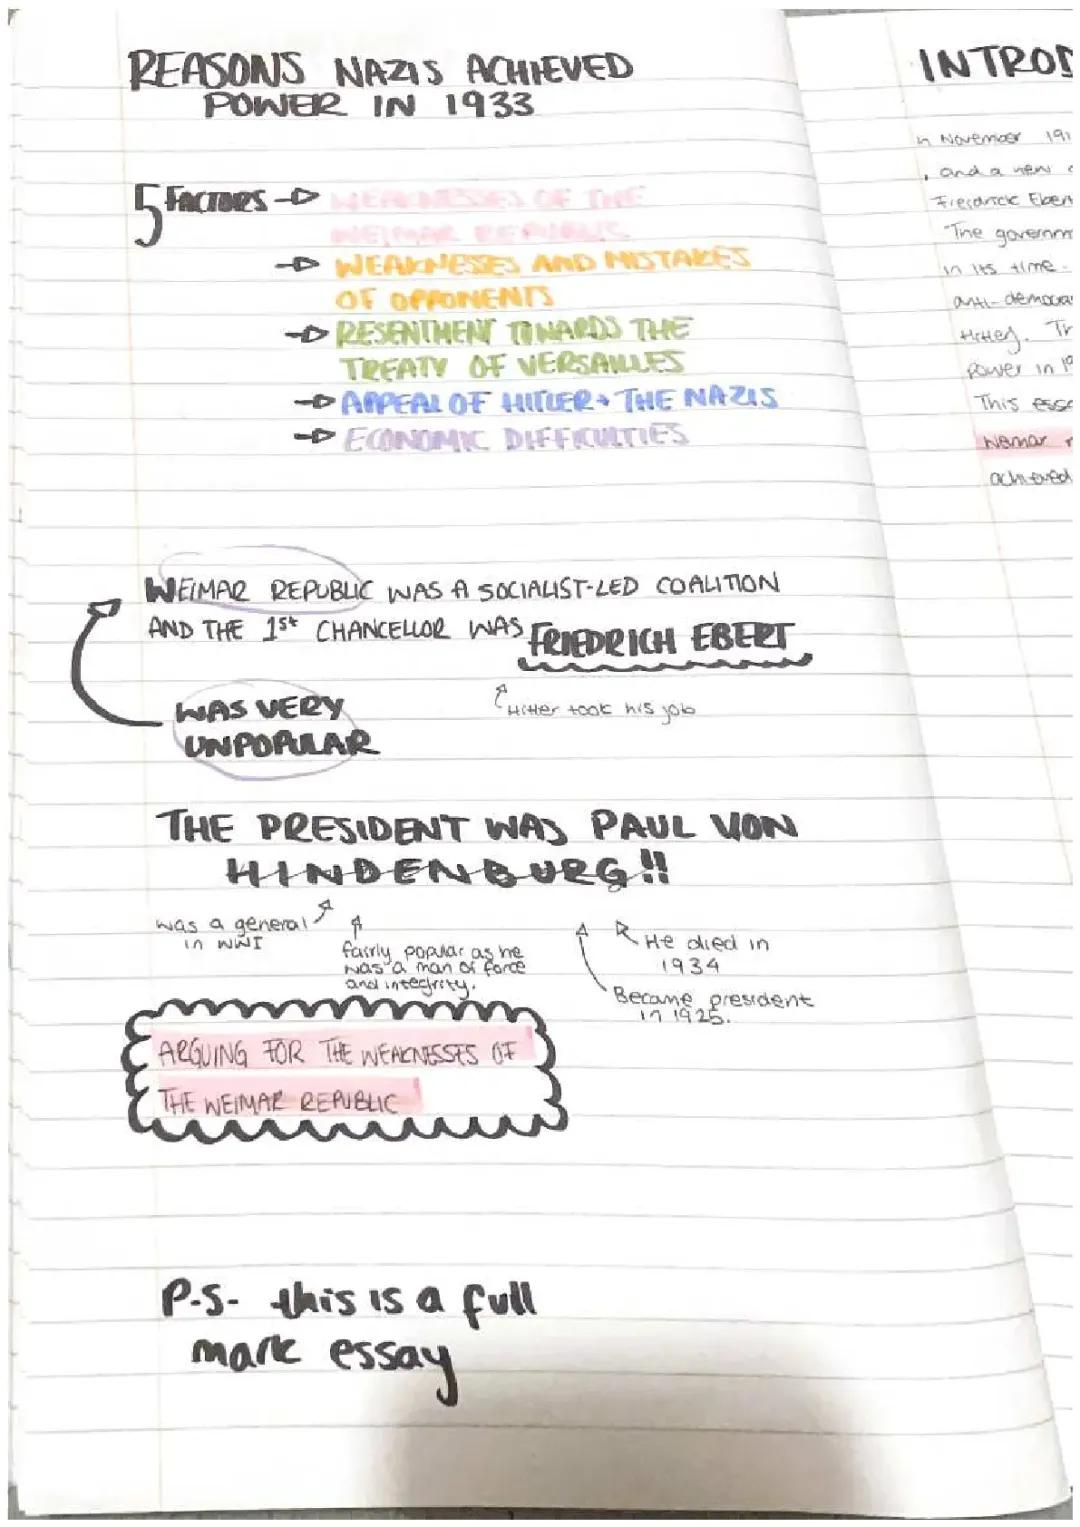 REASONS NAZIS ACHIEVED
POWER IN 1933
5 FACTORS → WEAKNESSES OF THE
WEIMAR REPUBLIC
→ WEAKNESSES AND MISTAKES
OF OPPONENTS
→ RESENTMENT TOWARDS THE
TREATY OF VERSAILLES
→ APPEAL OF HITLER + THE NAZIS
→ ECONOMIC DIFFICULTIES
WEIMAR REPUBLIC WAS A SOCIALIST-LED COALITION
AND THE 1st CHANCELLOR WAS FRIEDRICH EBERT
Hitler took his job
WAS VERY
UNPOPULAR
THE PRESIDENT WAS PAUL VON
HINDENBURG!!
was a general
in WWI
fairly popular as he
was a man of force
and integrity.
He died in
1934
Became president
in 1925.
ARGUING FOR THE WEAKNESSES OF
THE WEIMAR REPUBLIC
P.S- this is a full
mark essay
INTROD
in November 191
, and a new
Friedrick Ebert
The governm
in its time.
anti-democra
Hitler. Tr
power in 19
This essa
Weimar r
achieved